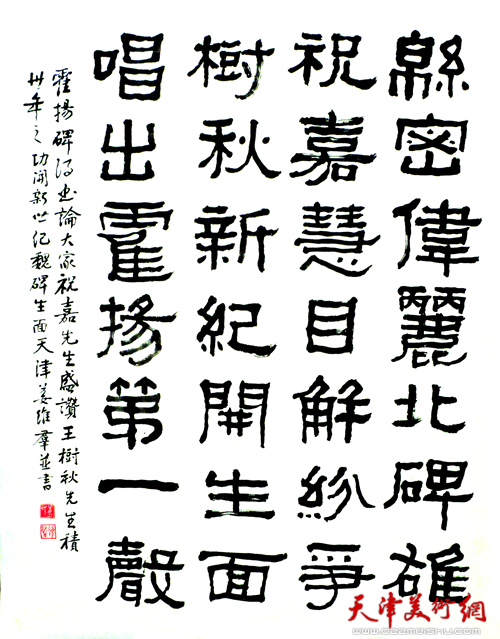 緜密偉麗北碑雄
祝嘉慧目解紛爭
樹秋新紀開生面
唱出霍揚第一聲
霍揚碑得書論大家祝嘉先生盛讚王樹秋先生積
卅年之功開新世紀魏碑生面天津姜維群並書
天津美術網
www.022meishu.com